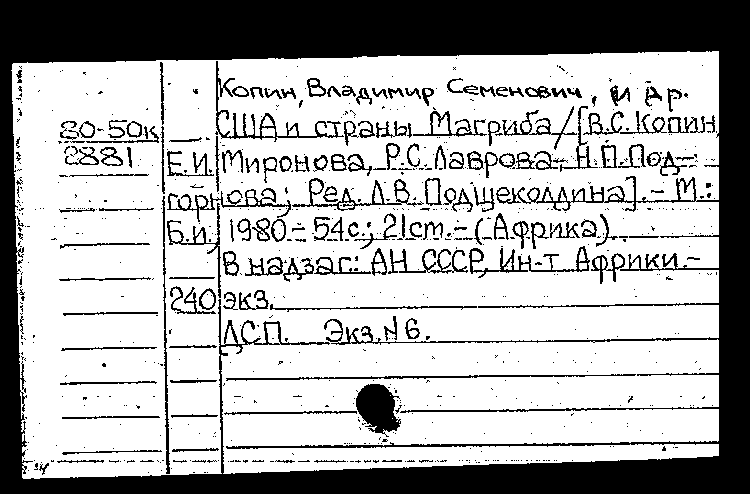 Копин, Владимир Семенович, и др.
80-50к США и страны Магриба/[В.С.Копин,
2881 Е.И. Миронова, Р.С.Лаврова, Н.П.Под-
горнова; Ред. Л.В.Подщеколдина].- М.:
Б.и., 1980.- 54с.; 21см.- (Африка).
В надзаг.: АН СССР, Ин-т Африки.-
240 экз.
ДСП. Экз.№6.